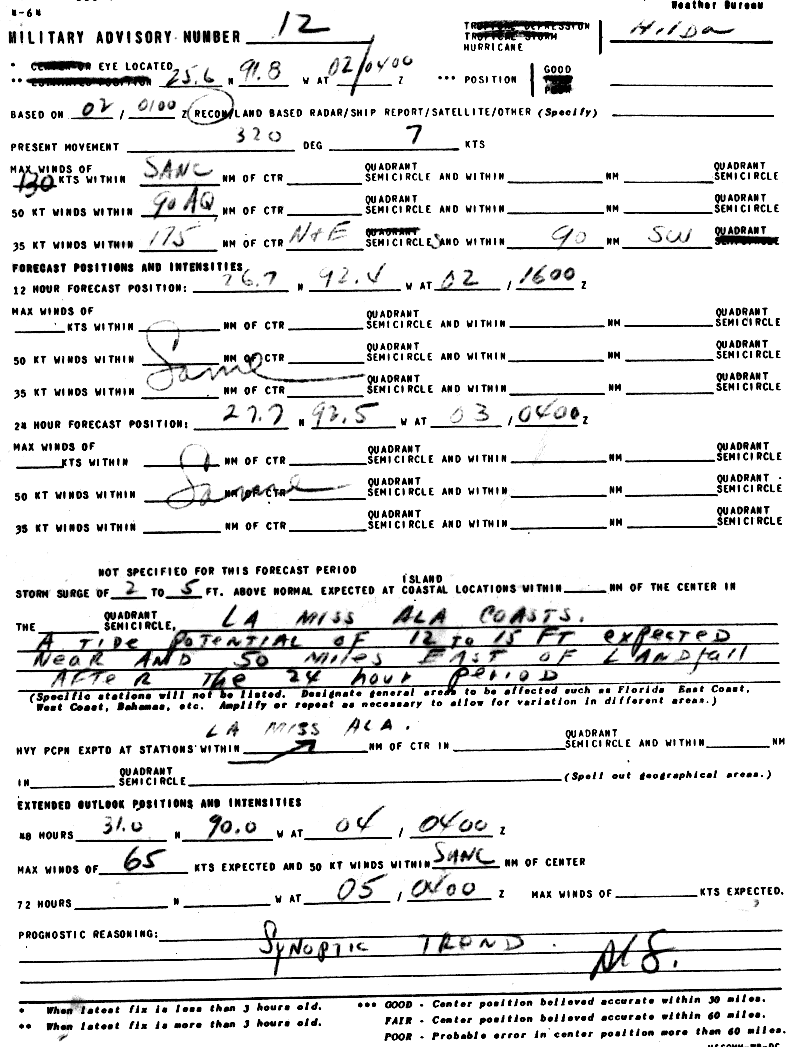 W-6W Weather Bureau
MILITARY ADVISORY NUMBER 12 TROPICAL DEPRESSION
TROPICAL STORM
HURRICANE Hilda
* EYE LOCATED
** 25.6 N 91.8 W AT 02/0400 Z *** POSITION GOOD
BASED ON 02 / 0100 Z RECON/LAND BASED RADAR/SHIP REPORT/SATELLITE/OTHER (Specify)
PRESENT MOVEMENT 320 DEG 7 KTS
MAX WINDS OF QUADRANT QUADRANT
130 KTS WITHIN SANC NM OF CTR SEMICIRCLE AND WITHIN NM SEMICIRCLE
50 KT WINDS WITHIN 90 AQ NM OF CTR QUADRANT SEMICIRCLE AND WITHIN NM QUADRANT SEMICIRCLE
35 KT WINDS WITHIN 175 NM OF CTR N+E SEMICIRCLES AND WITHIN 90 NM SW QUADRANT
FORECAST POSITIONS AND INTENSITIES
12 HOUR FORECAST POSITION: 26.7 N 92.4 W AT 02 / 1600 Z
MAX WINDS OF QUADRANT QUADRANT
KTS WITHIN NM OF CTR SEMICIRCLE AND WITHIN NM SEMICIRCLE
50 KT WINDS WITHIN Same NM OF CTR QUADRANT SEMICIRCLE AND WITHIN NM QUADRANT SEMICIRCLE
35 KT WINDS WITHIN NM OF CTR QUADRANT SEMICIRCLE AND WITHIN NM QUADRANT SEMICIRCLE
24 HOUR FORECAST POSITION: 27.7 N 92.5 W AT 03 / 0400 Z
MAX WINDS OF QUADRANT QUADRANT
KTS WITHIN NM OF CTR SEMICIRCLE AND WITHIN NM SEMICIRCLE
50 KT WINDS WITHIN Same NM OF CTR QUADRANT SEMICIRCLE AND WITHIN NM QUADRANT SEMICIRCLE
35 KT WINDS WITHIN NM OF CTR QUADRANT SEMICIRCLE AND WITHIN NM QUADRANT SEMICIRCLE
NOT SPECIFIED FOR THIS FORECAST PERIOD
STORM SURGE OF 2 TO 5 FT. ABOVE NORMAL EXPECTED AT ISLAND COASTAL LOCATIONS WITHIN NM OF THE CENTER IN
THE QUADRANT SEMICIRCLE, LA MISS ALA COASTS.
A TIDE POTENTIAL OF 12 to 15 FT expected
Near AND 50 Miles EAST OF LANDfall
AFTER The 24 hour period
(Specific stations will not be listed. Designate general areas to be affected such as Florida East Coast,
West Coast, Bahamas, etc. Amplify or repeat as necessary to allow for variation in different areas.)
LA MISS ALA.
HVY PCPN EXPTD AT STATIONS WITHIN NM OF CTR IN QUADRANT SEMICIRCLE AND WITHIN NM
IN QUADRANT SEMICIRCLE (Spell out geographical areas.)
EXTENDED OUTLOOK POSITIONS AND INTENSITIES
48 HOURS 31.0 N 90.0 W AT 04 / 0400 Z
MAX WINDS OF 65 KTS EXPECTED AND 50 KT WINDS WITHIN SANC NM OF CENTER
72 HOURS N W AT 05 / 0400 Z MAX WINDS OF KTS EXPECTED.
PROGNOSTIC REASONING:
SYNOPTIC TREND.
* When latest fix is less than 3 hours old. *** GOOD - Center position believed accurate within 30 miles.
** When latest fix is more than 3 hours old. FAIR - Center position believed accurate within 60 miles.
POOR - Probable error in center position more than 60 miles.